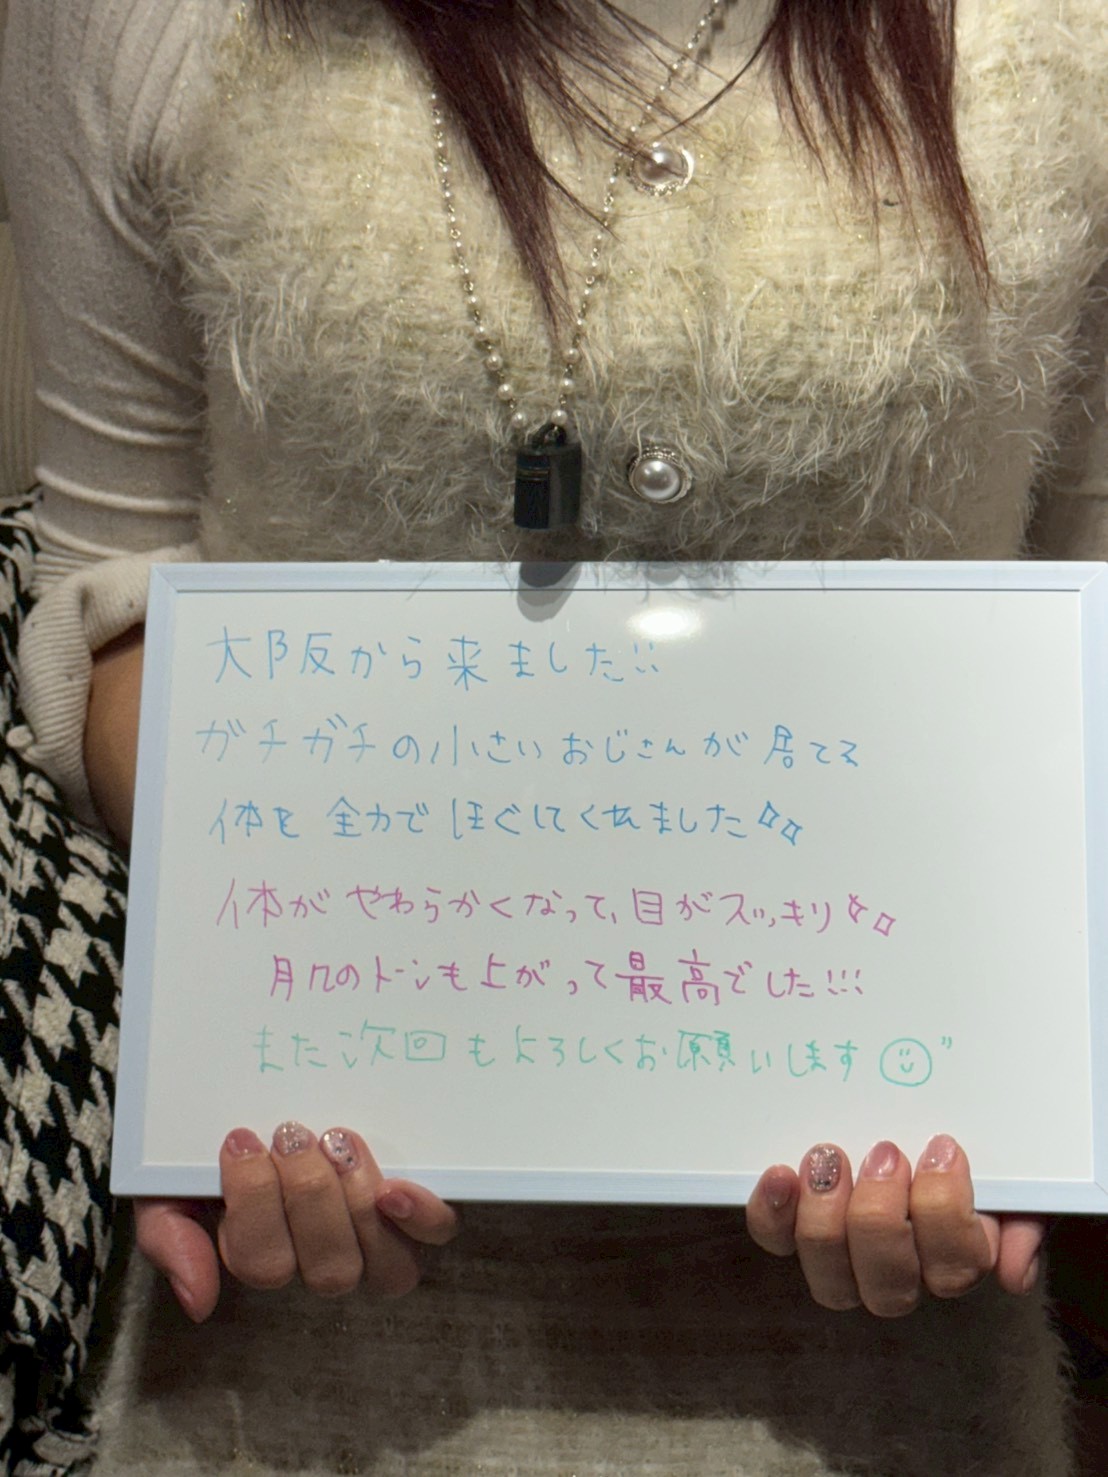 大阪から来ました!!
ガチガチの小さいおじさんが居てる
体を全力でほぐしてくれました
体がやわらかくなって、目がスッキリ
肌のトーンも上がって最高でした!!!
また次回もよろしくお願いします